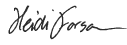 Heidi Forsan